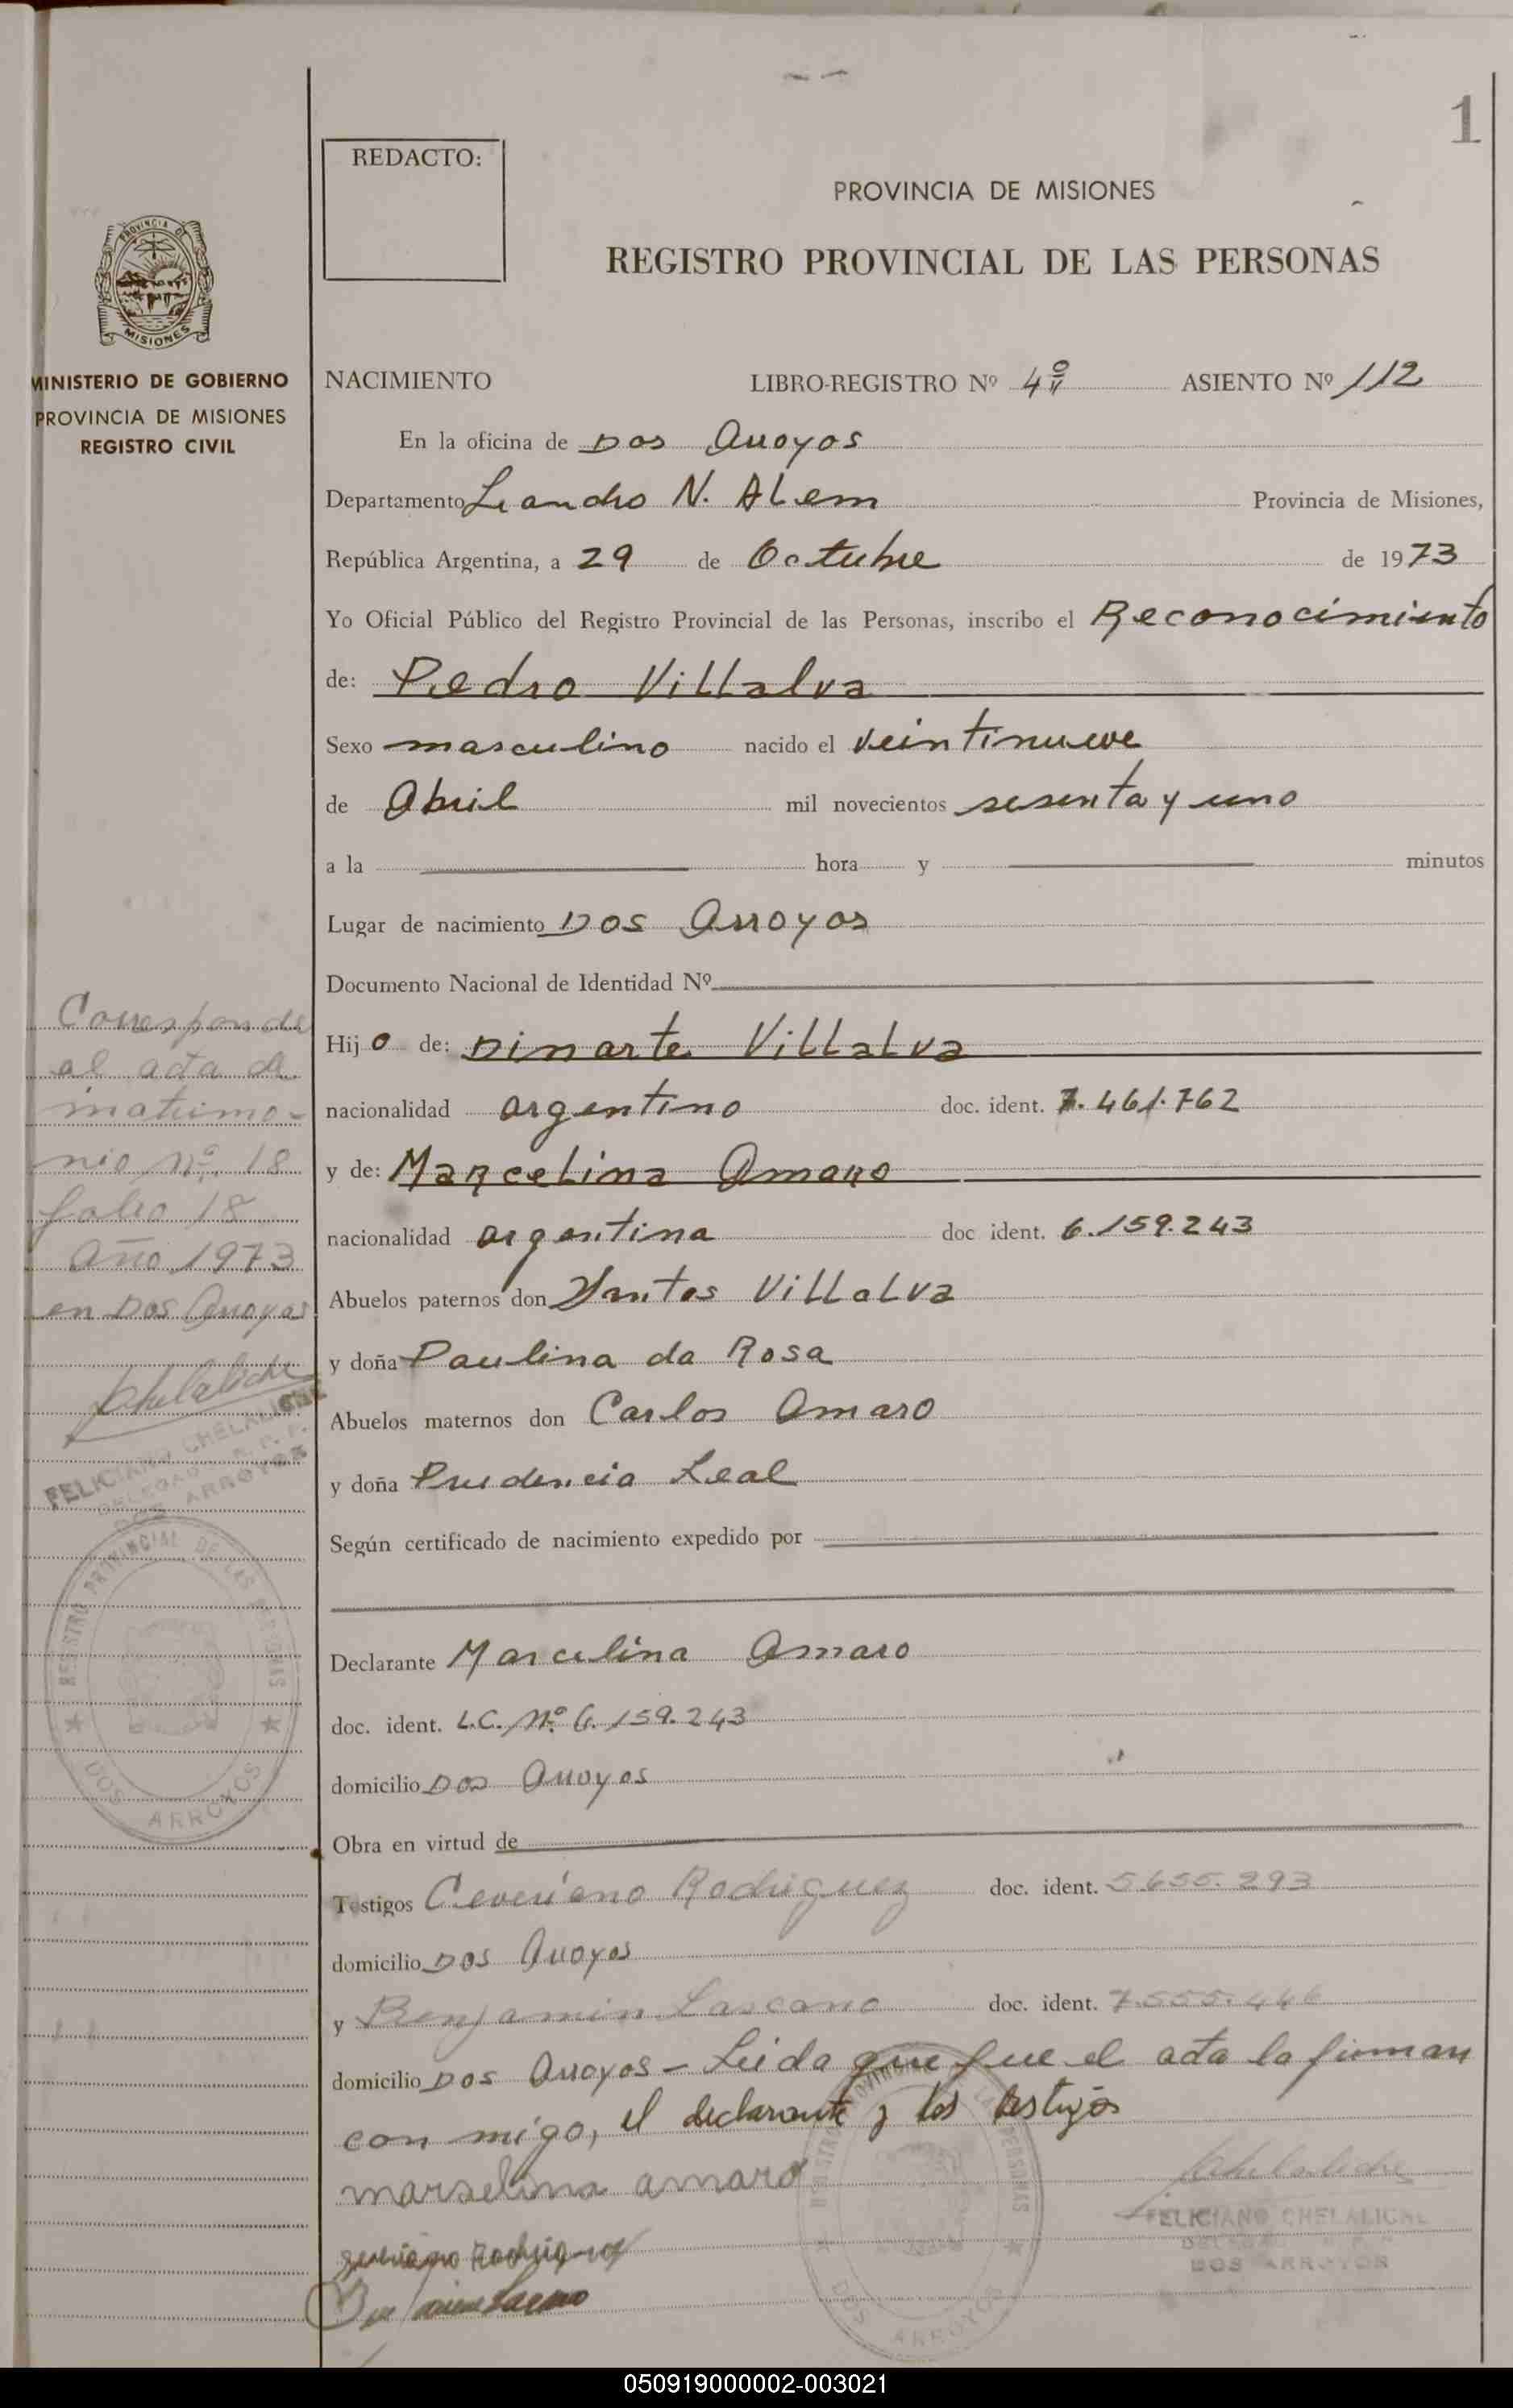 1
REDACTO:
PROVINCIA DE MISIONES
REGISTRO PROVINCIAL DE LAS PERSONAS
PROVINCIA DE
MISIONES
MINISTERIO DE GOBIERNO
PROVINCIA DE MISIONES
REGISTRO CIVIL
NACIMIENTO LIBRO-REGISTRO Nº 4º ASIENTO Nº 112
En la oficina de Dos Arroyos
Departamento Leandro N. Alem Provincia de Misiones,
República Argentina, a 29 de Octubre de 1973
Yo Oficial Público del Registro Provincial de las Personas, inscribo el Reconocimiento
de: Pedro Villalva
Sexo masculino nacido el veintinueve
de Abril mil novecientos sesenta y uno
a la hora y minutos
Lugar de nacimiento Dos Arroyos
Documento Nacional de Identidad Nº
Hijo de: Dinarte Villalva
nacionalidad argentino doc. ident. 7.461.762
y de: Marcelina Amaro
nacionalidad argentina doc ident. 6.159.243
Abuelos paternos don Santos Villalva
y doña Paulina da Rosa
Abuelos maternos don Carlos Amaro
y doña Prudencia Leal
Según certificado de nacimiento expedido por
Declarante Marcelina Amaro
doc. ident. L.C. Nº 6.159.243
domicilio Dos Arroyos
Obra en virtud de
Testigos Ceveriano Rodriguez doc. ident. 5.655.293
domicilio Dos Arroyos
y Benjamin Lascano doc. ident. 7.555.446
domicilio Dos Arroyos - Leida que fue el acta la firman
con migo, el declarante y los testigos
marselina amaro
FELICIANO CHELALICHE
DOS ARROYOS
REGISTRO PROVINCIAL DE LAS PERSONAS
DOS ARROYOS
Corresponde
al acta de
matrimo-
nio Nº 18
folio 18
Año 1973
en Dos Arroyos
Chelaliche
FELICIANO CHELALICHE
DELEGADO R. P. P.
DOS ARROYOS
REGISTRO PROVINCIAL DE LAS PERSONAS
DOS ARROYOS
050919000002-003021